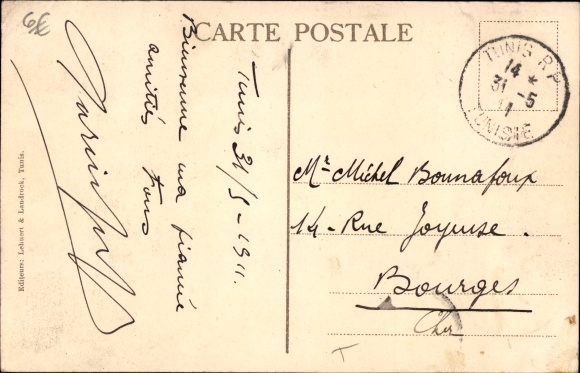 6€
CARTE POSTALE
TUNIS R.P
14 *
31 -5
11
TUNISIE
Tunis 31/5-1911.
Bienvenue ma fiancée
amitiés
Mr Michel Bounafoux
14 - Rue Joyeuse.
Bourges
Cher
T
Editeurs: Lehnert & Landrock, Tunis.